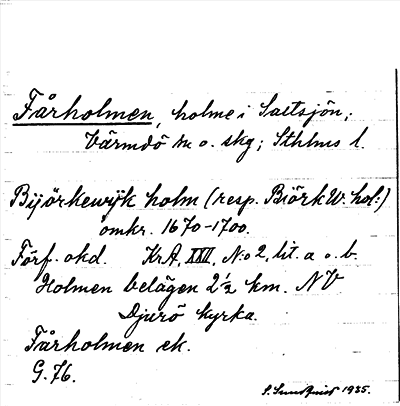 Fårholmen, holme i Saltsjön,
Värmdö sn o. skg; Sthlms l.
Bijörkewijk holm (resp. Biörk W. hol:)
omkr. 1670-1700.
Förf. okd. KrA, XXII, N:o 2, lit. a o. b.
Holmen belägen 2 1/2 km. NV
Djurö kyrka.
Fårholmen ek.
G. 76.
S. Sundquist 1935.